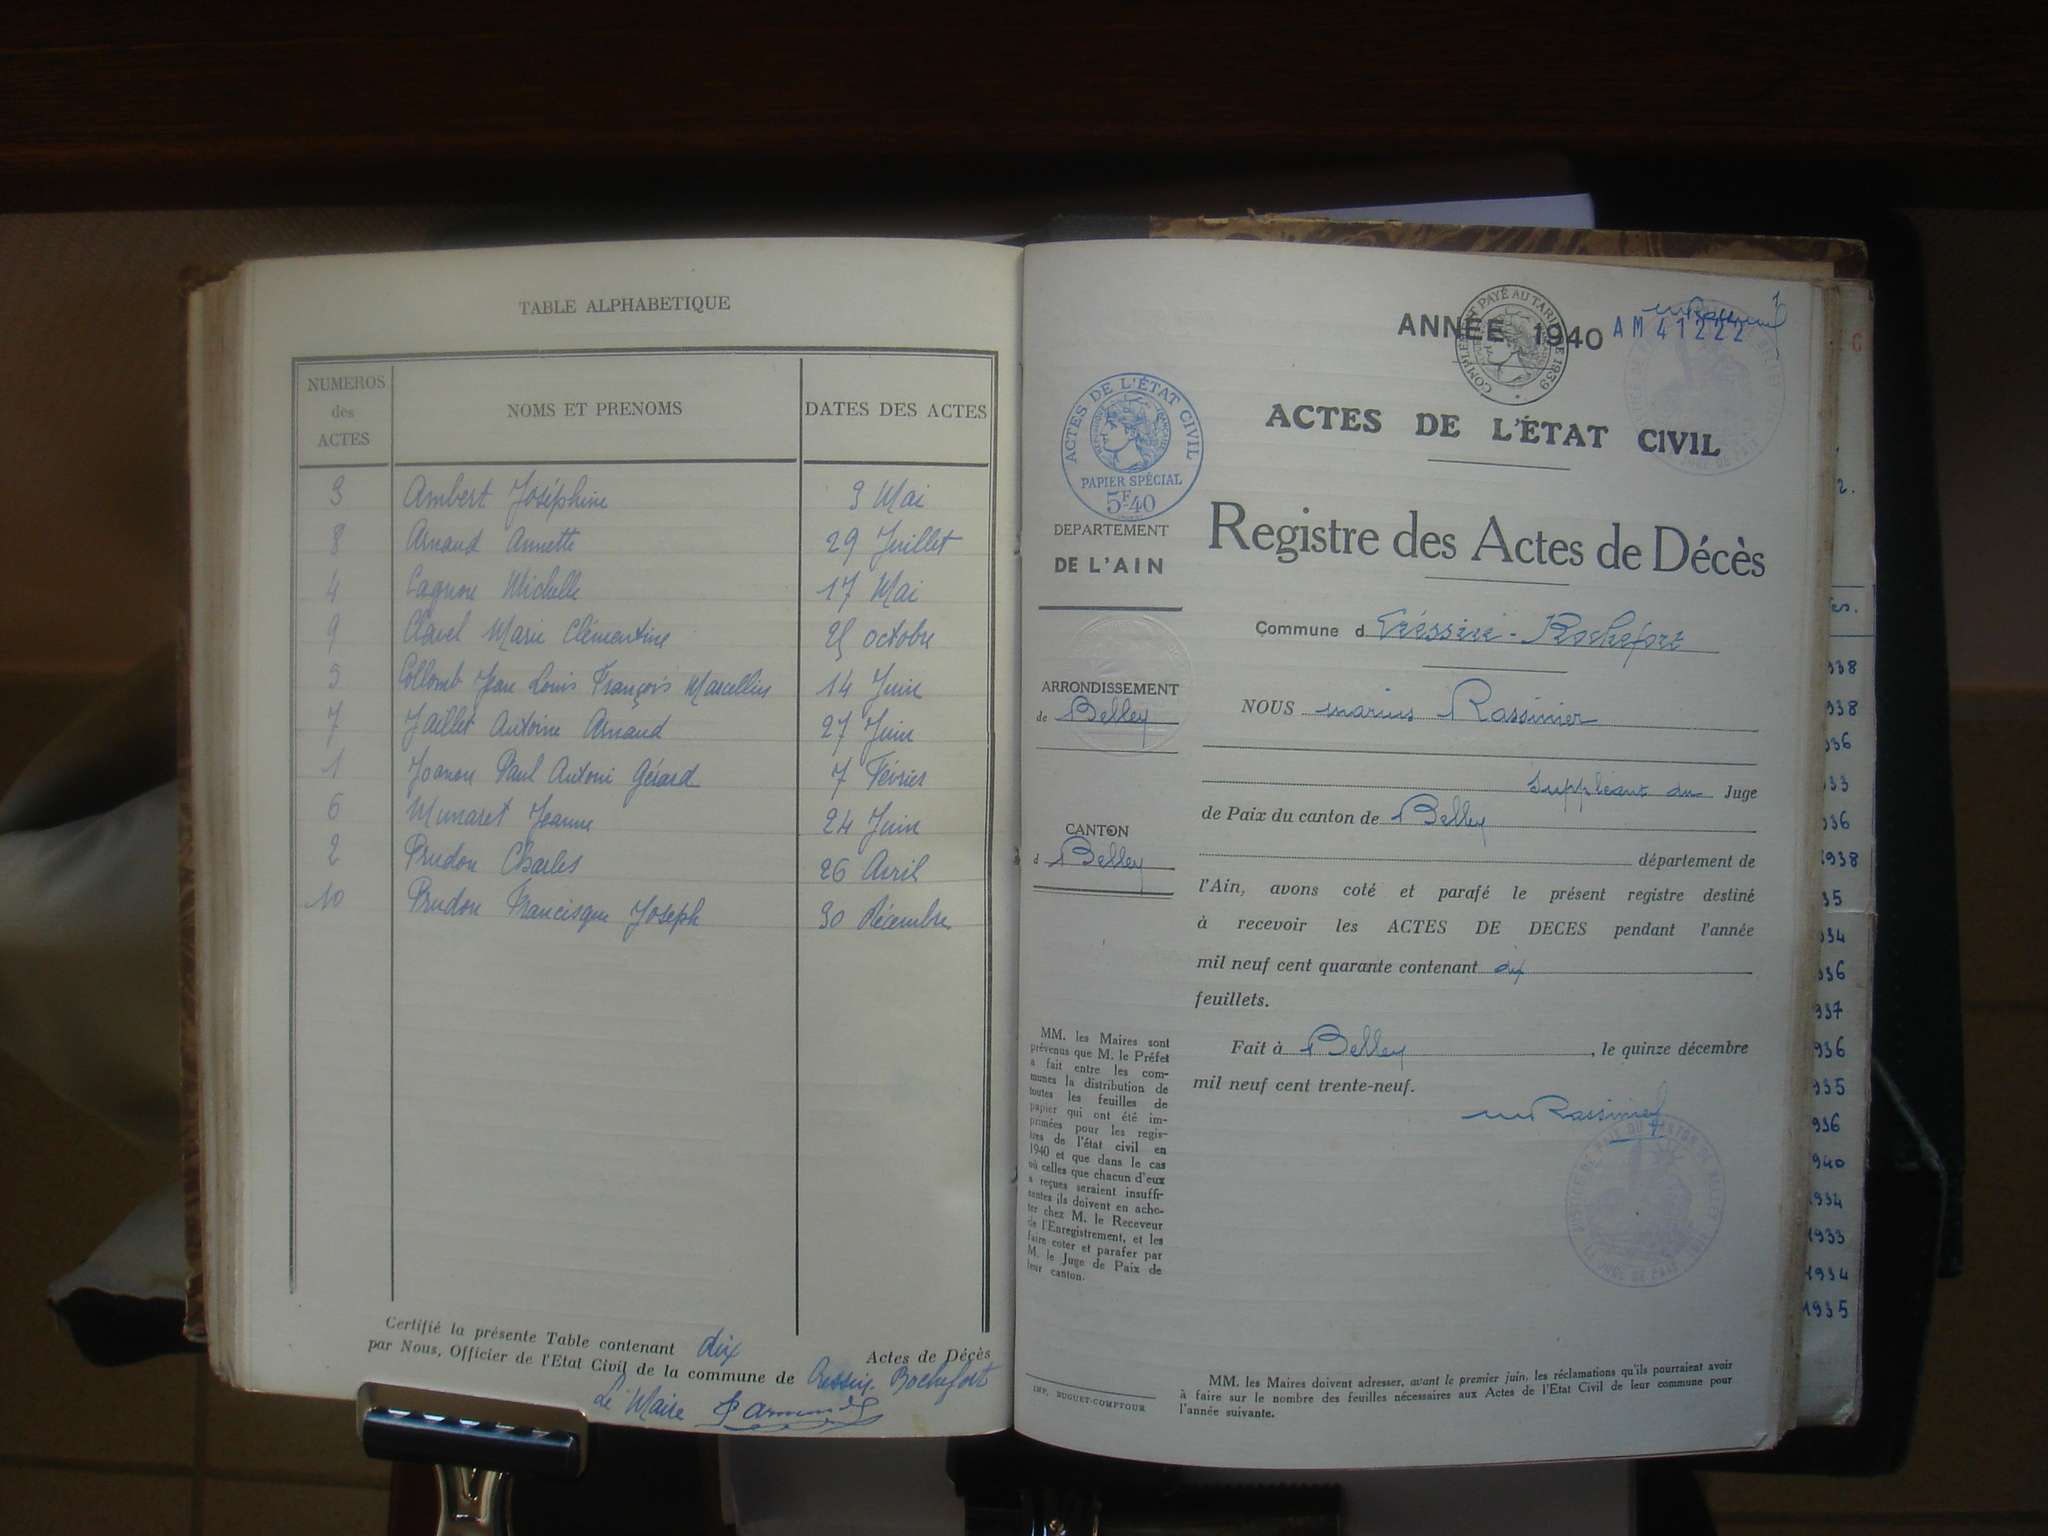 TABLE ALPHABETIQUE
NUMEROS des ACTES NOMS ET PRENOMS DATES DES ACTES
3 Ambert Joséphine 3 Mai
8 Arnaud Annette 29 Juillet
4 Cagnon Michelle 17 Mai
9 Clavel Marie Clémentine 25 octobre
5 Collomb Jean Louis François Marcellin 14 Juin
7 Jaillet Antoine Arnaud 27 Juin
1 Joanon Paul Antoni Gérard 7 Février
6 Munaret Jeanne 24 Juin
2 Prudon Charles 26 Avril
10 Prudon Francisque Joseph 30 Décembre
Certifié la présente Table contenant dix Actes de Décès
par Nous, Officier de l'Etat Civil de la commune de Cressin-Rochefort
Le Maire
ANNÉE 1940
AM 41222
COMPLÉMENT PAYÉ AU TARIF DE 1939
ACTES DE L'ÉTAT CIVIL
RÉPUBLIQUE FRANÇAISE
PAPIER SPÉCIAL
5F40
ACTES DE L'ÉTAT CIVIL
DEPARTEMENT
DE L'AIN
Registre des Actes de Décès
Commune d Cressin-Rochefort
ARRONDISSEMENT
de Belley
NOUS Marius Rassinier
Suppléant du Juge
de Paix du canton de Belley
CANTON
d Belley
département de
l'Ain, avons coté et parafé le présent registre destiné
à recevoir les ACTES DE DECES pendant l'année
mil neuf cent quarante contenant dix
feuillets.
Fait à Belley, le quinze décembre
mil neuf cent trente-neuf.
M Rassinier
MM. les Maires sont
prévenus que M. le Préfet
a fait entre les com-
munes la distribution de
toutes les feuilles de
papier qui ont été im-
primées pour les regis-
tres de l'état civil en
1940 et que dans le cas
où celles que chacun d'eux
a reçues seraient insuffi-
santes ils doivent en ache-
ter chez M. le Receveur
de l'Enregistrement, et les
faire coter et parafer par
M. le Juge de Paix de
leur canton.
IMP. BUGUET-COMPTOUR
MM. les Maires doivent adresser, avant le premier juin, les réclamations qu'ils pourraient avoir
à faire sur le nombre des feuilles nécessaires aux Actes de l'Etat Civil de leur commune pour
l'année suivante.
938
938
936
933
936
1938
935
934
936
937
936
935
936
940
1934
1933
1934
1935